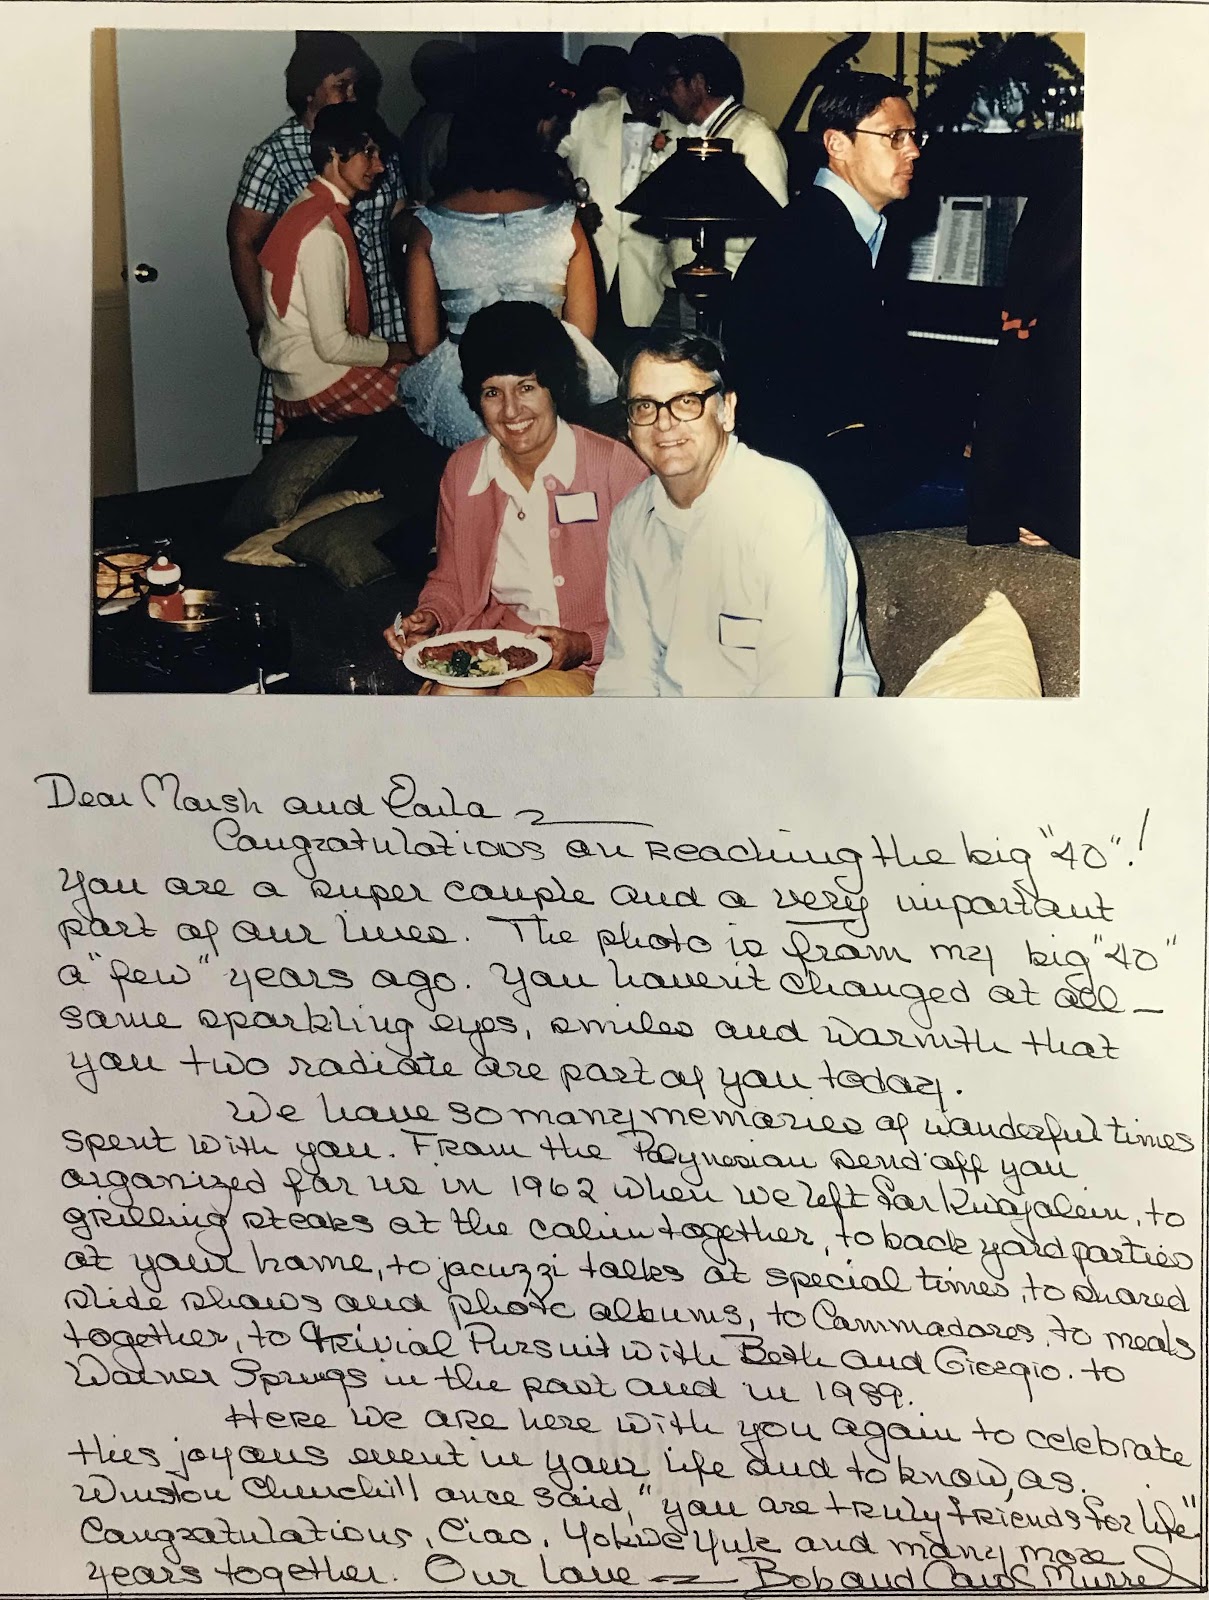 Dear Marsh and Carla —
Congratulations on reaching the big "40"!
You are a super couple and a very important
part of our lives. The photo is from my big "40"
a "few" years ago. You haven't changed at all —
same sparkling eyes, smiles and warmth that
you two radiate are part of you today.
We have so many memories of wonderful times
spent with you. From the Polynesian send off you
organized for us in 1962 when we left for Kwajalein, to
grilling steaks at the cabin together, to back yard parties
at your home, to jacuzzi talks at special times, to shared
slide shows and photo albums, to Commadores, to meals
together, to Trivial Pursuit with Beth and Giorgio. to
Warner Springs in the past and in 1989.
Here we are here with you again to celebrate
this joyous event in your life and to know, as
Winston Churchill once said, "you are truly friends for life"
Congratulations, Ciao, Yokwe Yuk and many more
years together. Our love — Bob and Carol Murrel